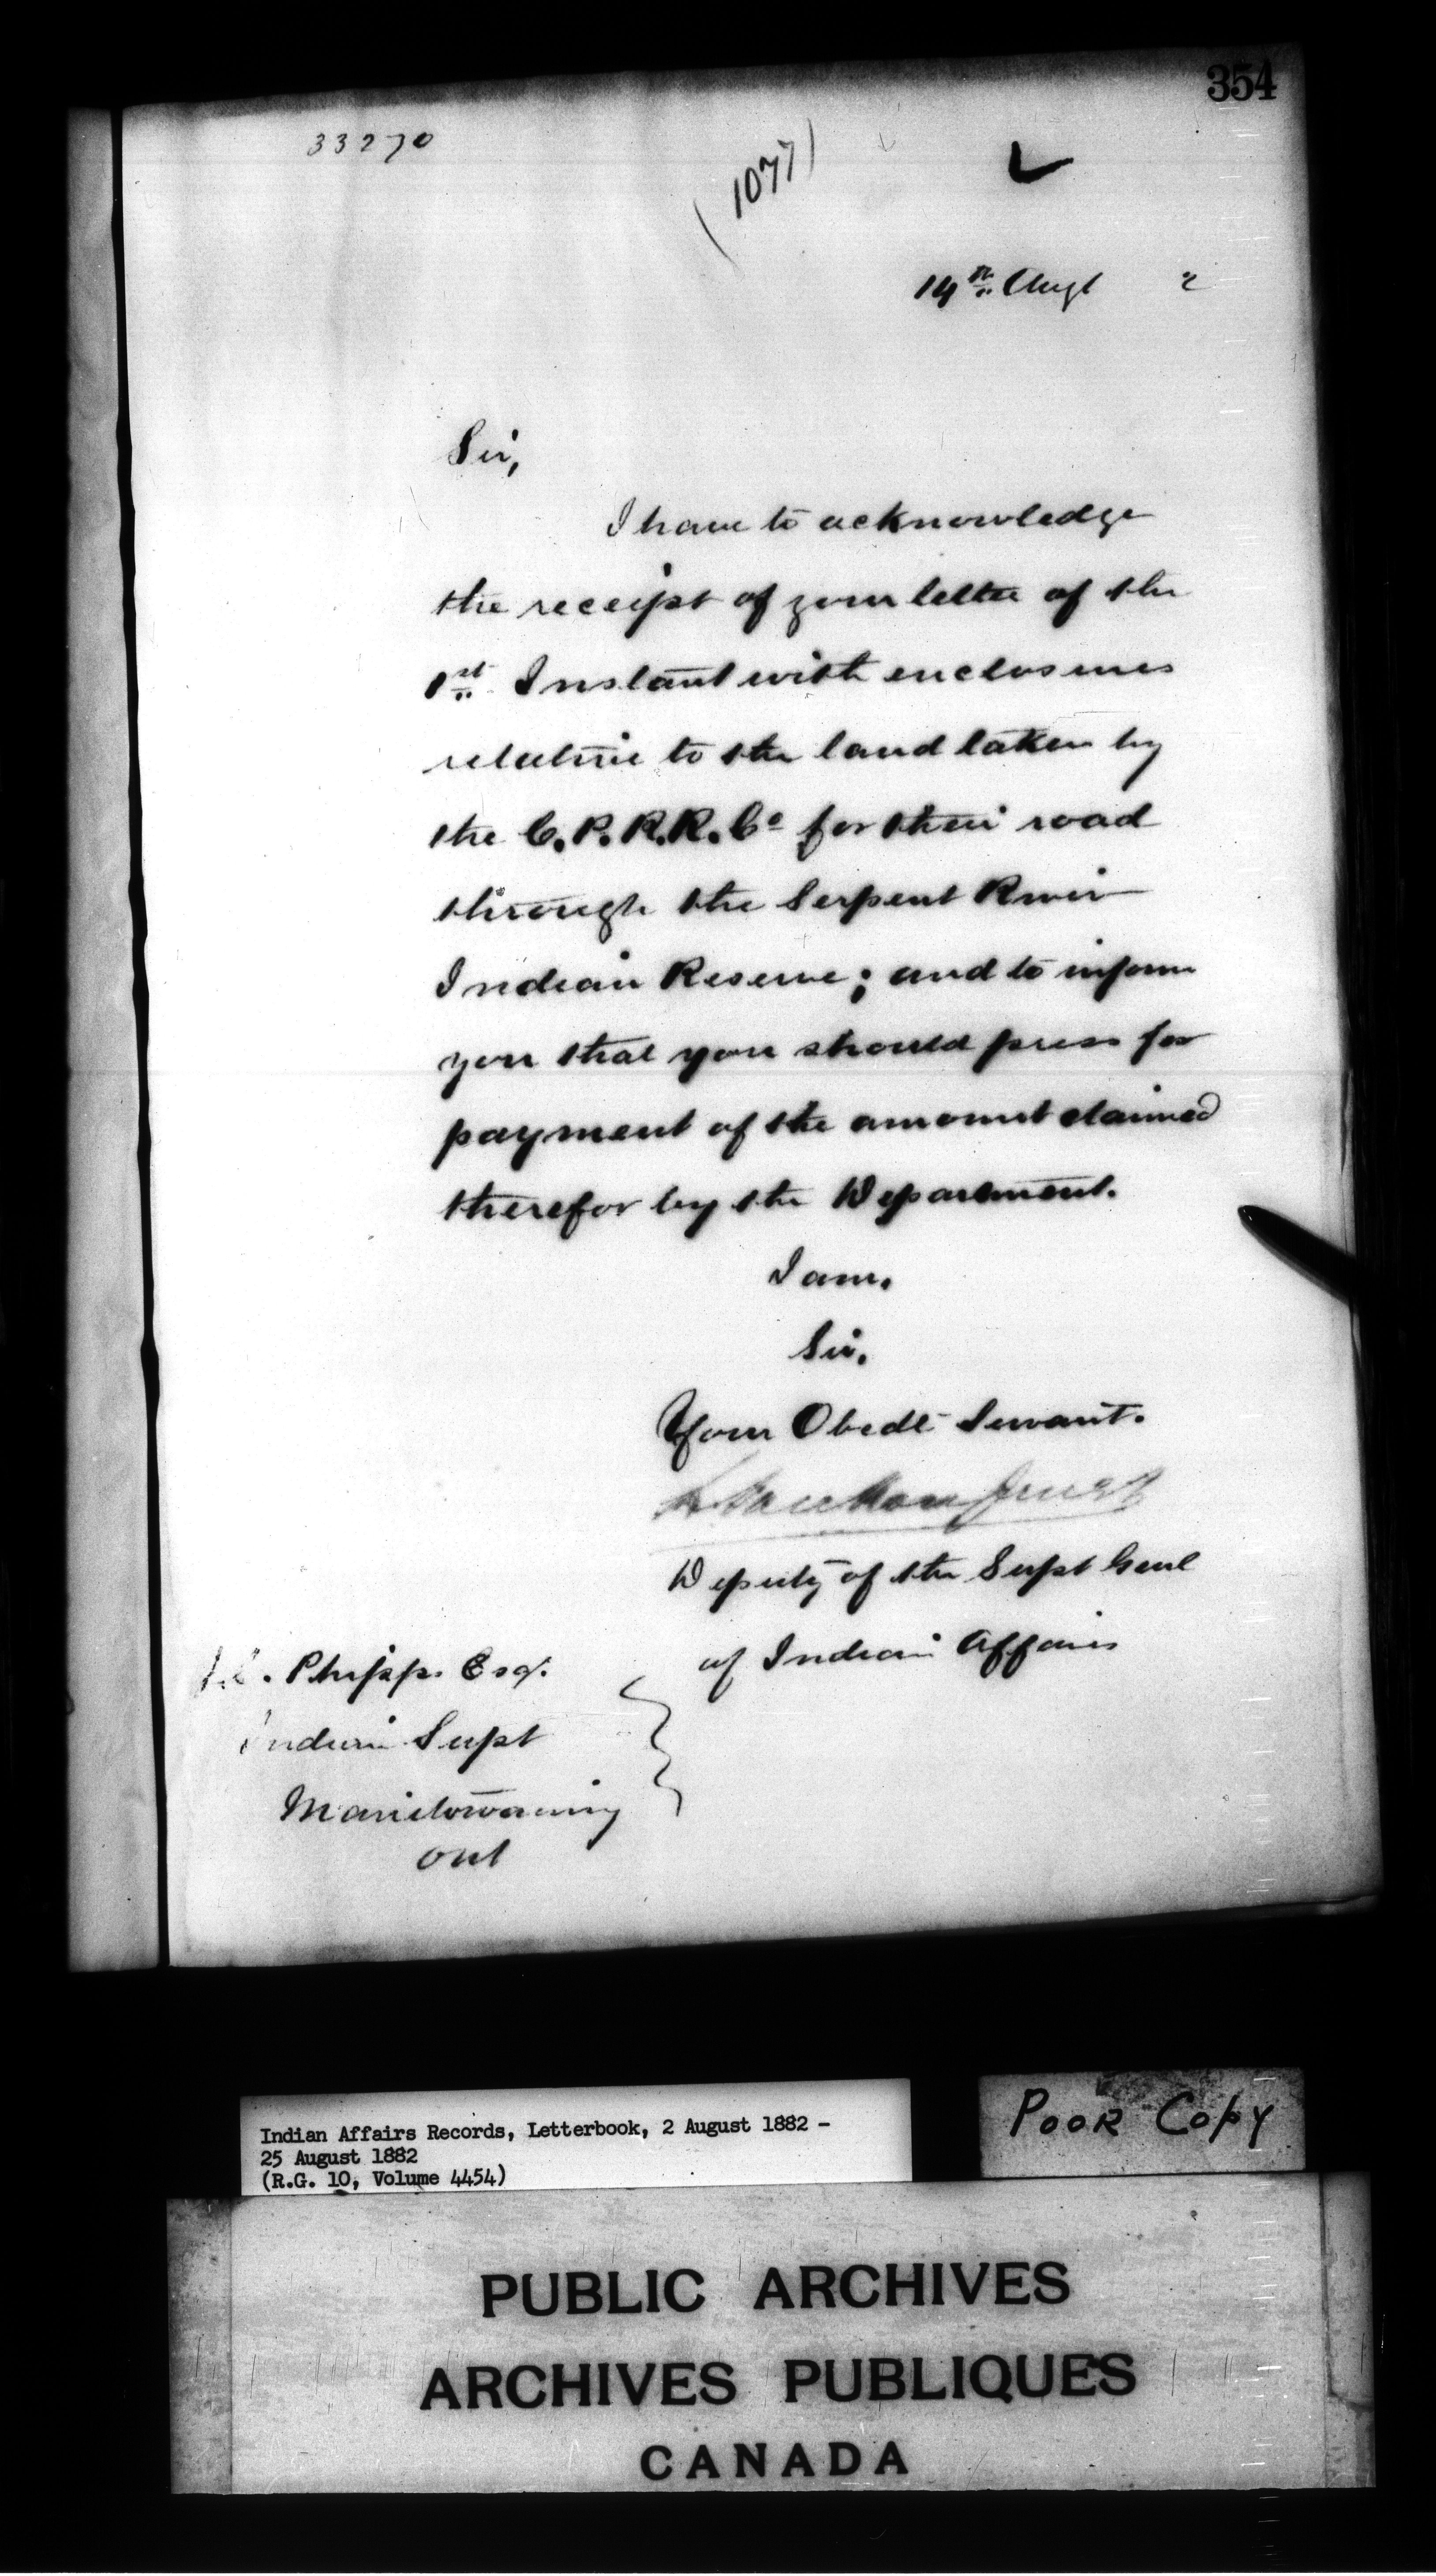 354
33270
(1077)
14th Augt 2
Sir,
I have to acknowledge
the receipt of your letter of the
1st Instant with enclosures
relative to the land taken by
the C.P.R.R. Co for their road
through the Serpent River
Indian Reserve; and to inform
you that you should press for
payment of the amount claimed
therefor by the Department.
I am.
Sir.
Your Obedt Servant.
Deputy of the Supt Genl
of Indian Affairs
Phipps Esq.
Indian Supt
Manitowaning
Ont
Indian Affairs Records, Letterbook, 2 August 1882 -
25 August 1882
(R.G. 10, Volume 4454)
POOR COPY
PUBLIC ARCHIVES
ARCHIVES PUBLIQUES
CANADA